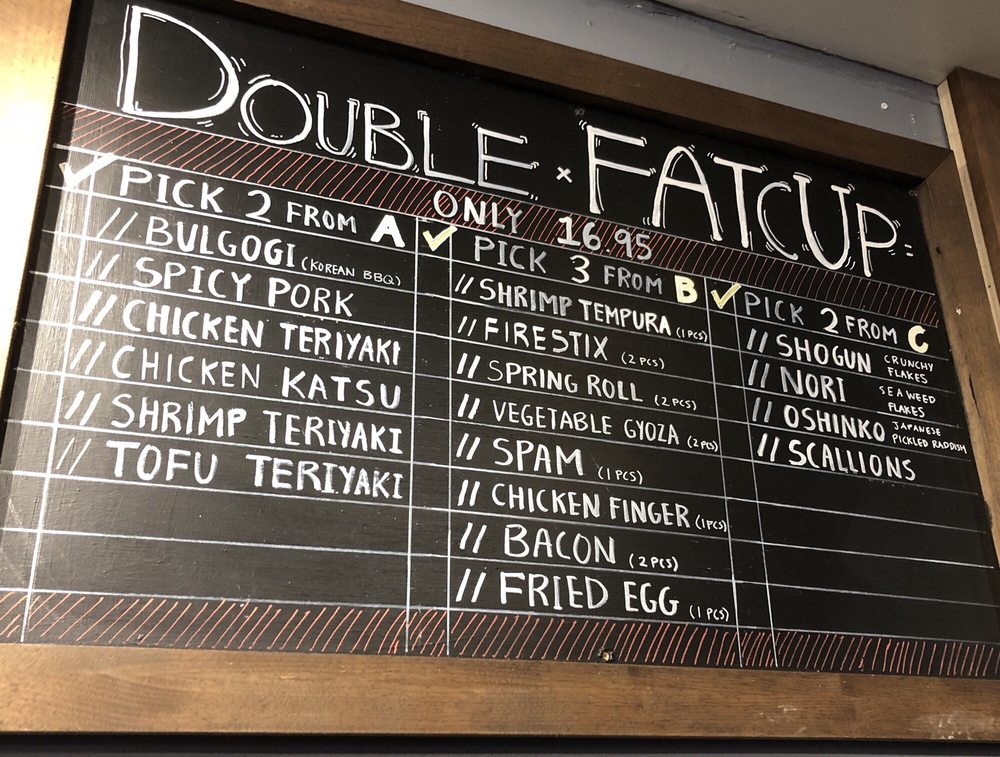 DOUBLE x FATCUP
ONLY 16.95
PICK 2 FROM A
// BULGOGI (KOREAN BBQ)
// SPICY PORK
// CHICKEN TERIYAKI
// CHICKEN KATSU
// SHRIMP TERIYAKI
// TOFU TERIYAKI
PICK 3 FROM B
// SHRIMP TEMPURA (1 PCS)
// FIRESTIX (2 PCS)
// SPRING ROLL (2 PCS)
// VEGETABLE GYOZA (2 PCS)
// SPAM (1 PCS)
// CHICKEN FINGER (1 PCS)
// BACON (2 PCS)
// FRIED EGG (1 PCS)
PICK 2 FROM C
// SHOGUN CRUNCHY FLAKES
// NORI SEAWEED FLAKES
// OSHINKO JAPANESE PICKLED RADDISH
// SCALLIONS